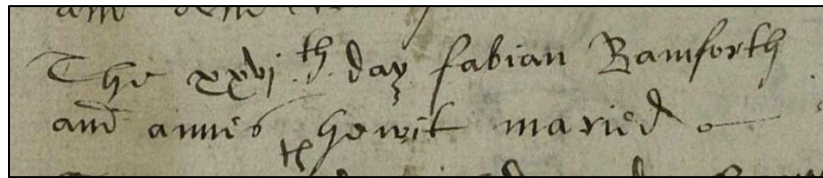 The xxvj th day fabian Bamforth
and annes howit maried